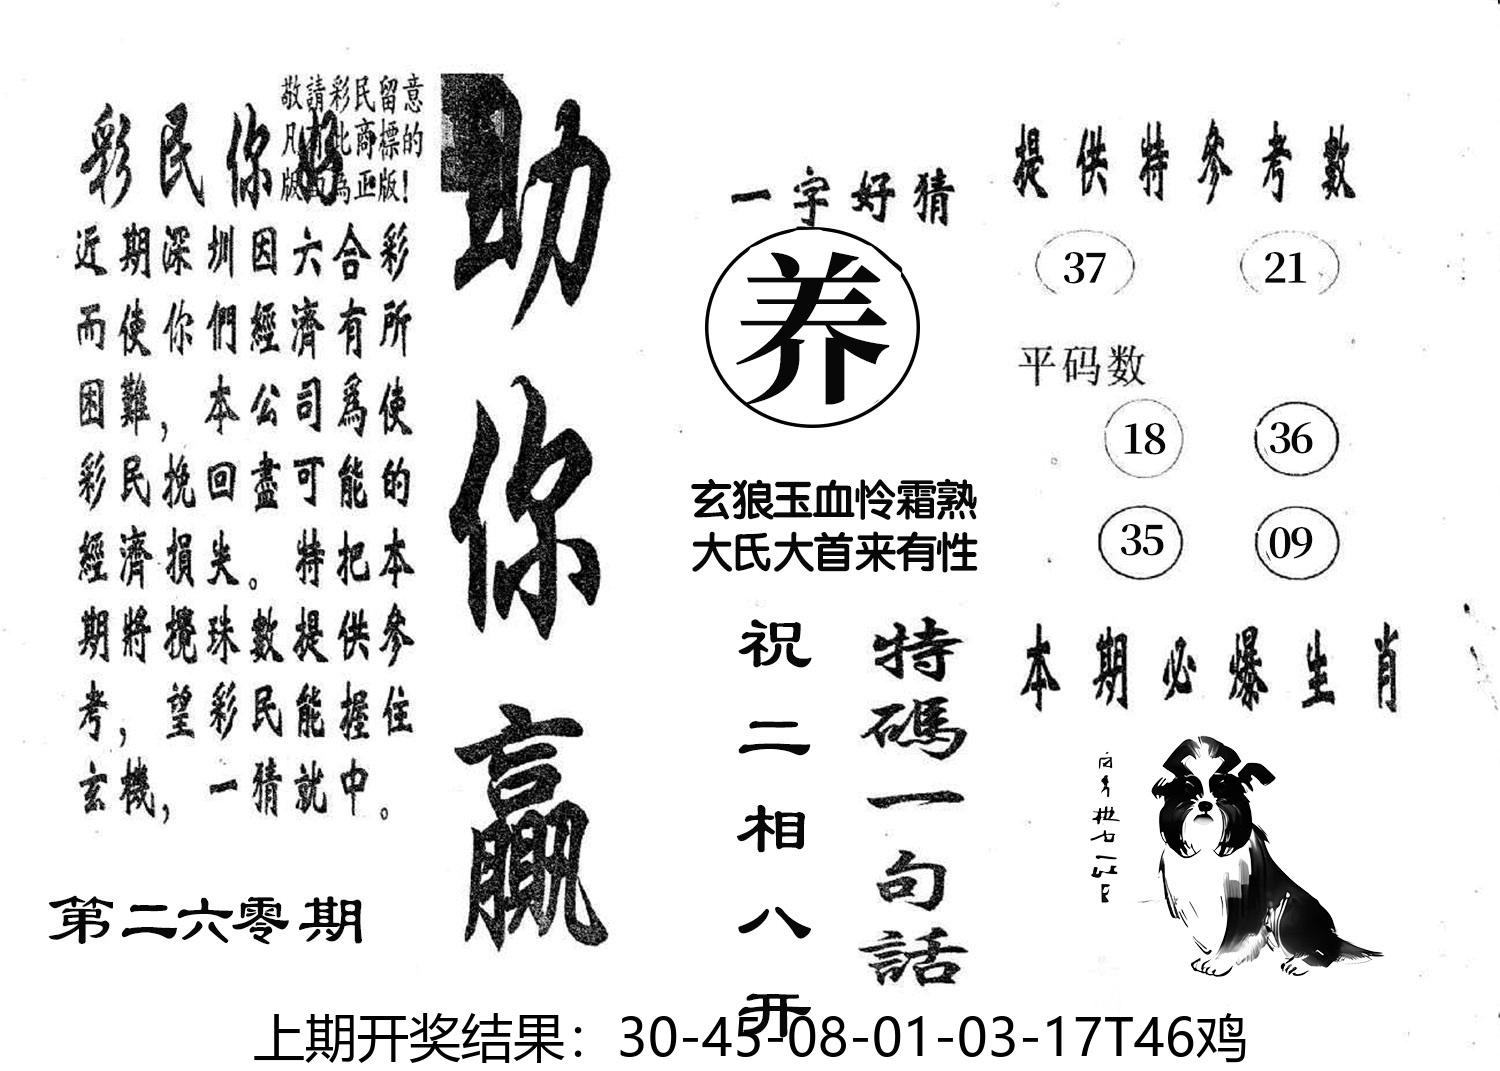 敬請彩民留意
凡有此商標的
版面為正版！
彩民你好
近期深圳因六合彩
而使你們經濟有所
困難，本公司爲使
彩民挽回盡可能的
經濟損失。特把本
期將攪珠數提供參
考，望彩民能握住
玄機，一猜就中。
第二六零期
助你贏
一字好猜
养
玄狼玉血怜霜熟
大氏大首来有性
特碼一句話
祝二相八开
提供特參考數
37 21
平码数
18 36
35 09
本期必爆生肖
上期开奖结果：30-45-08-01-03-17T46鸡